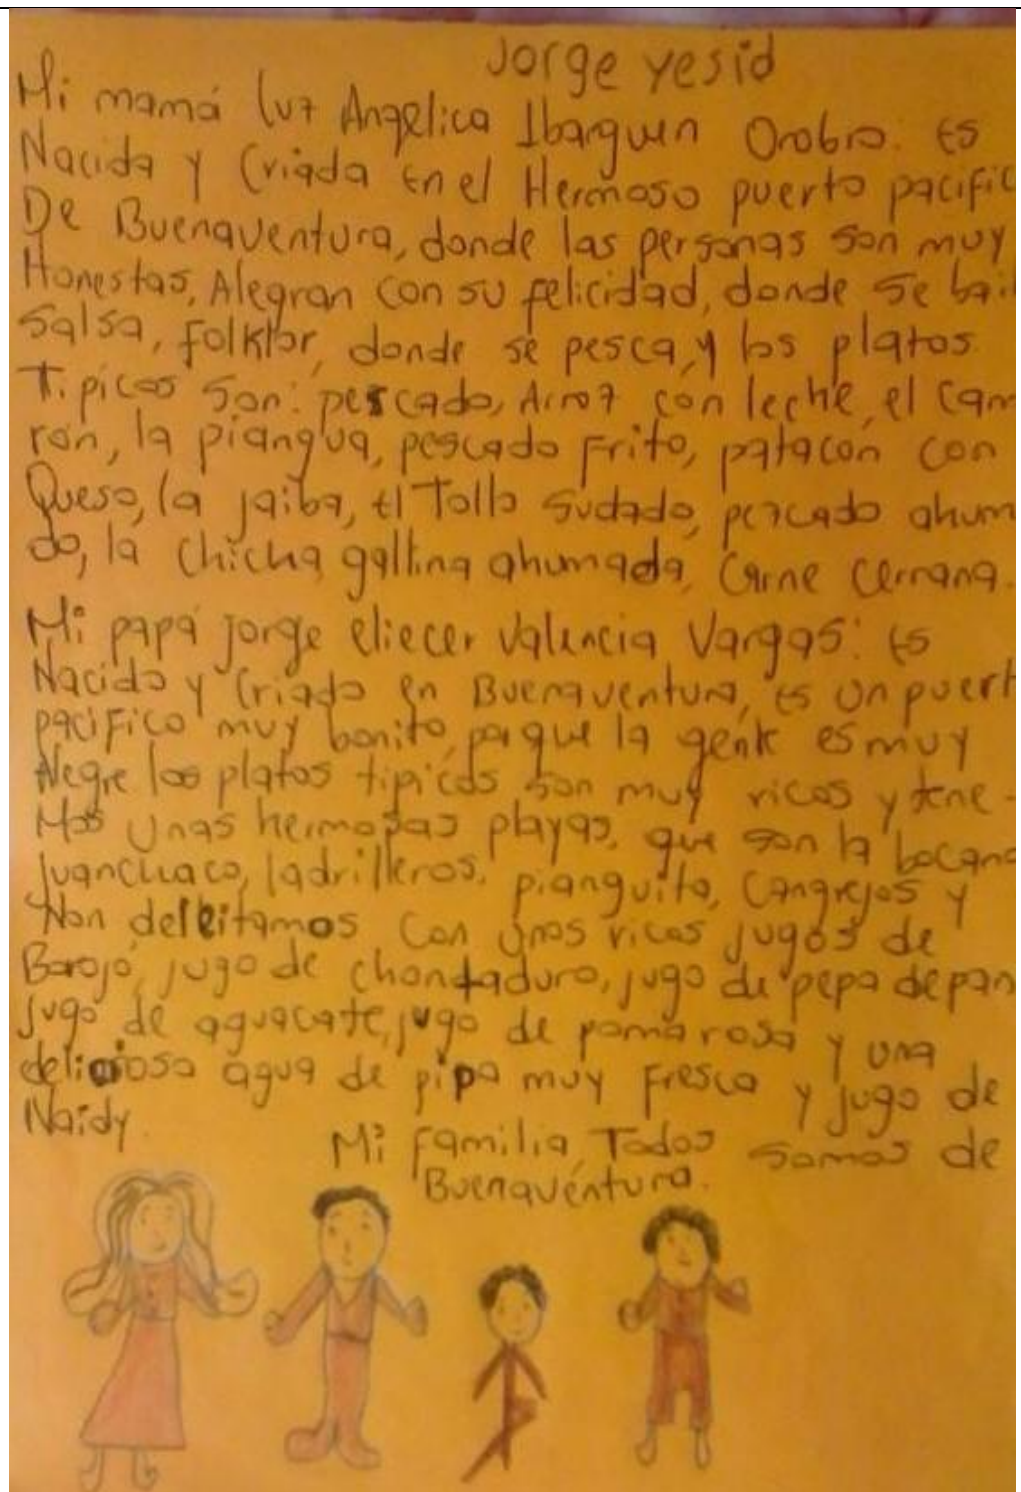 Jorge yesid
Mi mamá luz Angelica Ibarguen Orobio: Es
Nacida y Criada En el Hermoso puerto pacific
De Buenaventura, donde las personas son muy
Honestas, Alegran con su felicidad, donde se bail
Salsa, Folklor, donde se pesca, y los platos
Tipicos son: pescado, Arroz con leche, el cam
ron, la piangua, pescado Frito, patacon con
Queso, la jaiba, El Tollo Sudado, pezcado ahum
do, la chicha gallina ahumada, Carne Cerrana.
Mi papá jorge eliecer Valencia Vargas: Es
Nacido y Criado en Buenaventura, es un puert
pacifico muy bonito, porque la gente es muy
Alegre los platos tipicos son muy ricos y tene-
Mos unas hermosas playas, que son la bocana
Juanchaco, ladrilleros, pianguita, Cangrejos y
Non deleitamos Con unos ricos jugos de
Borojo, jugo de chontaduro, jugo de pepa de pan
Jugo de aguacate, jugo de pomarosa y una
deliciosa agua de pipa muy Fresca y jugo de
Naidy.
Mi familia, Todos somos de
Buenaventura.